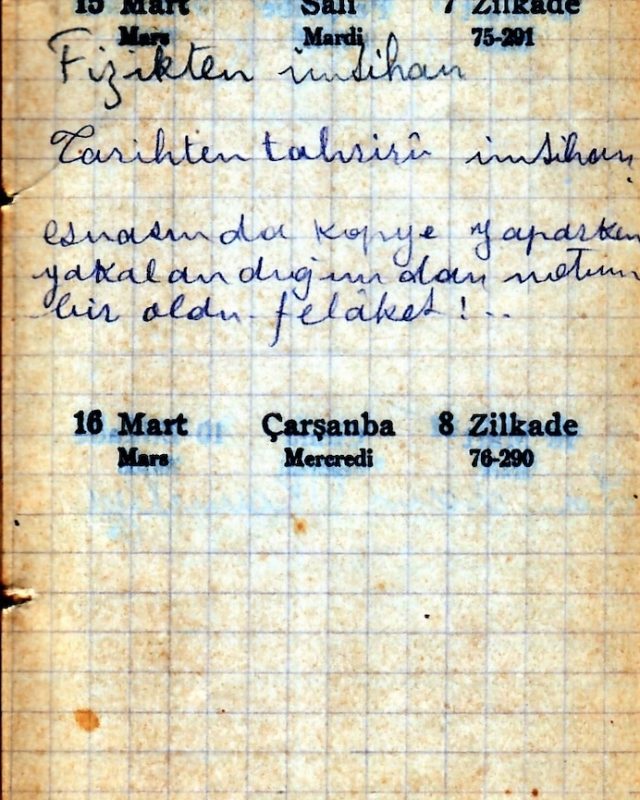 15 Mart Salı 7 Zilkade
Mars Mardi 75-291
Fizikten imtihan
Tarihten tahriri imtihan,
esnasında kopye yaparken
yakalandığımdan notum
bir oldu. felâket!..
16 Mart Çarşanba 8 Zilkade
Mars Mercredi 76-290